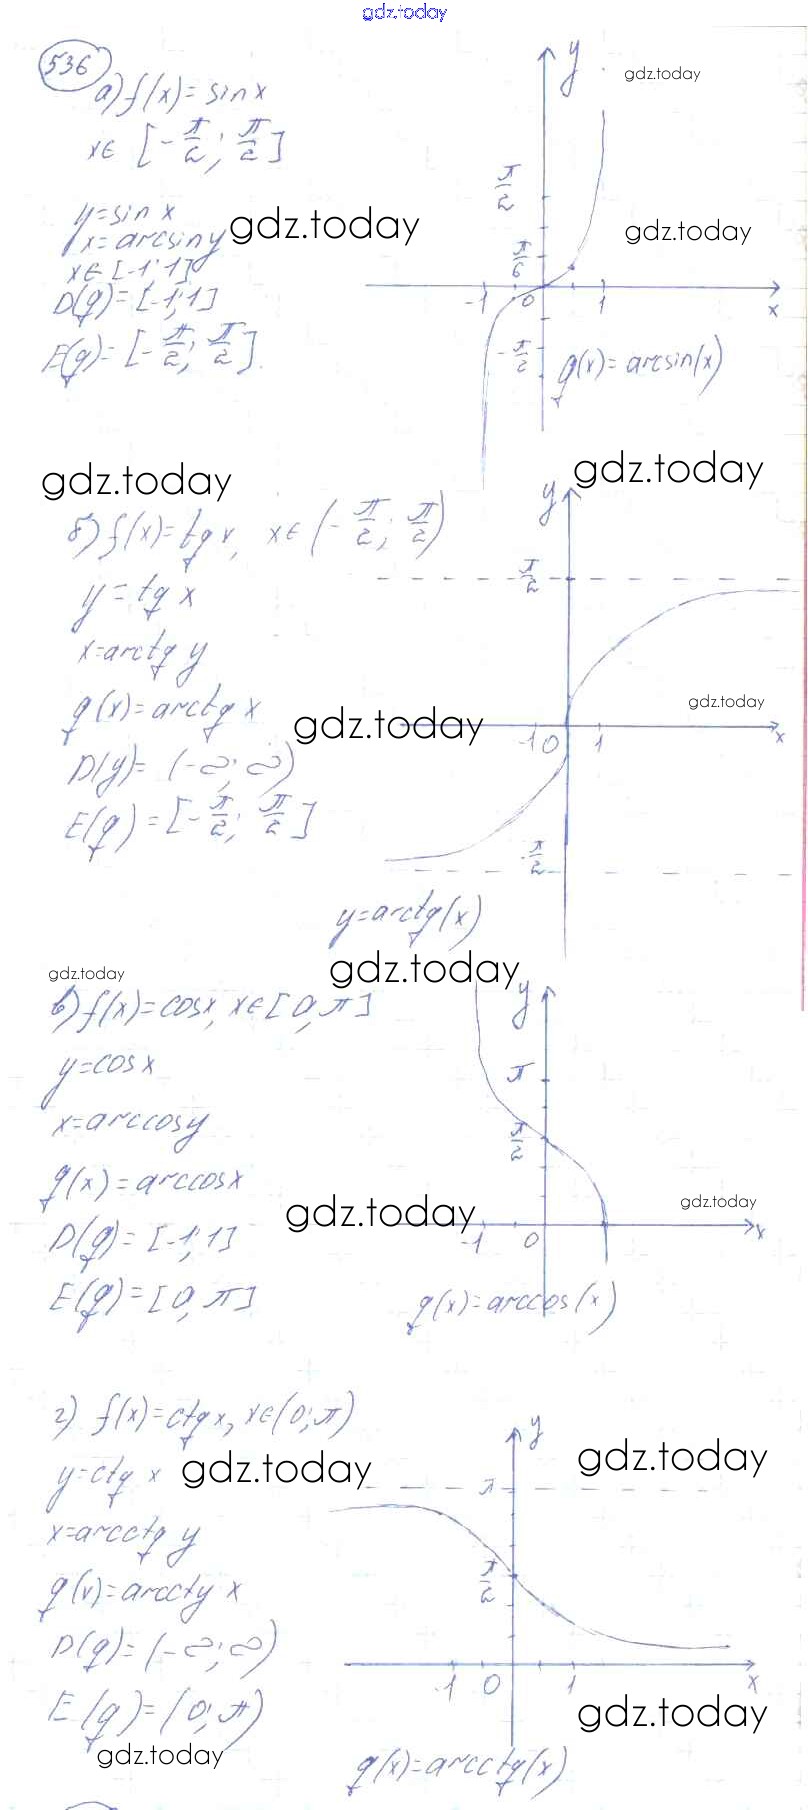 gdz.today
536
а) f(x) = sin x
x∈ [-π/2; π/2]
y = sin x
x = arcsin y
x∈ [-1; 1]
D(g) = [-1; 1]
E(g) = [-π/2; π/2].
y
gdz.today
π/2
gdz.today
gdz.today
π/6
-1 0 1 x
-π/2
g(x) = arcsin(x)
gdz.today
gdz.today
б) f(x) = tg x, x∈ (-π/2; π/2)
y = tg x
x = arctg y
g(x) = arctg x
D(y) = (-∞; ∞)
E(g) = [-π/2; π/2]
y
π/2
gdz.today
gdz.today
-1 0 1 x
-π/2
y = arctg(x)
gdz.today
gdz.today
в) f(x) = cos x, x∈ [0, π]
y = cos x
x = arccos y
g(x) = arccos x
D(g) = [-1; 1]
E(g) = [0, π]
y
π
π/2
gdz.today
gdz.today
-1 0 x
g(x) = arccos(x)
г) f(x) = ctg x, x∈(0; π)
y = ctg x
x = arcctg y
g(x) = arccty x
D(g) = (-∞; ∞)
E(g) = (0; π)
y
gdz.today
gdz.today
π
π/2
-1 0 1 x
gdz.today
gdz.today
g(x) = arcctg(x)